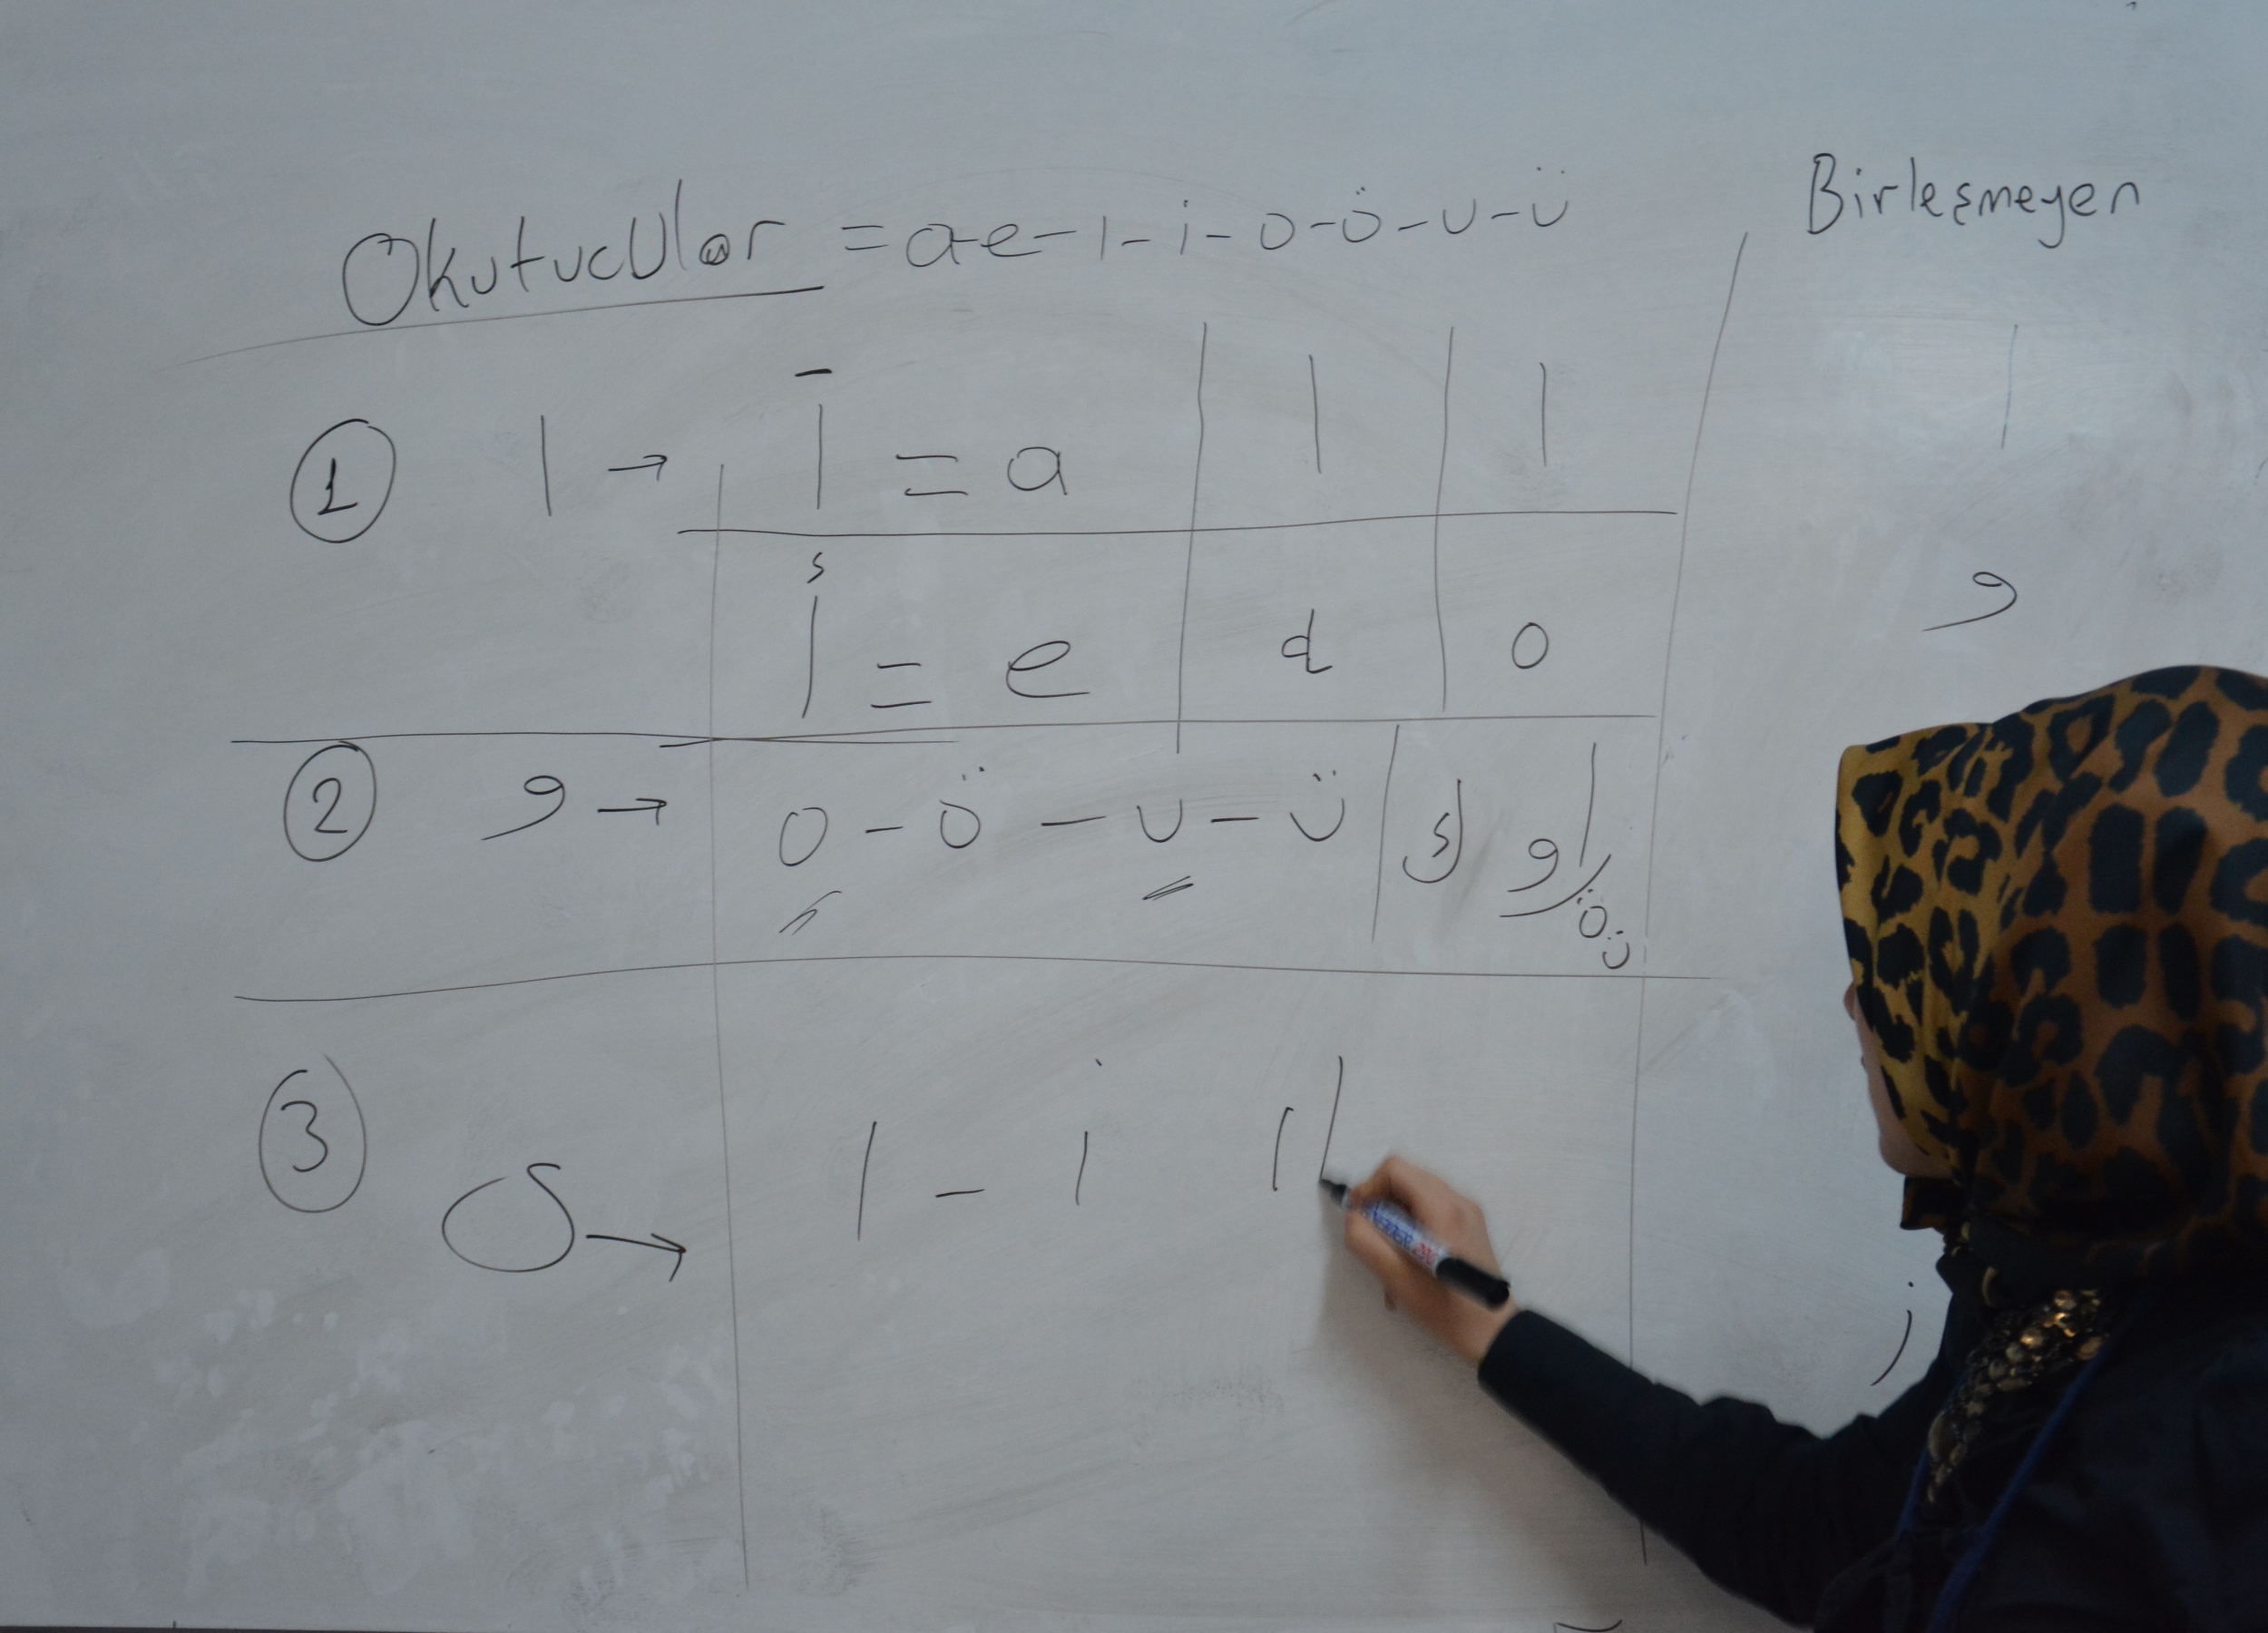 Okutucular = a-e-ı-i-o-ö-u-ü
Birleşmeyen
1 ا → آ = a ا ا
أ = e d o
و
2 و → o - ö - u - ü ك او
ö ü
3 ى → ı - i ا
ز